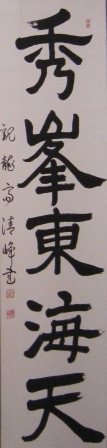 秀峯東海天
観龍窩清峰書